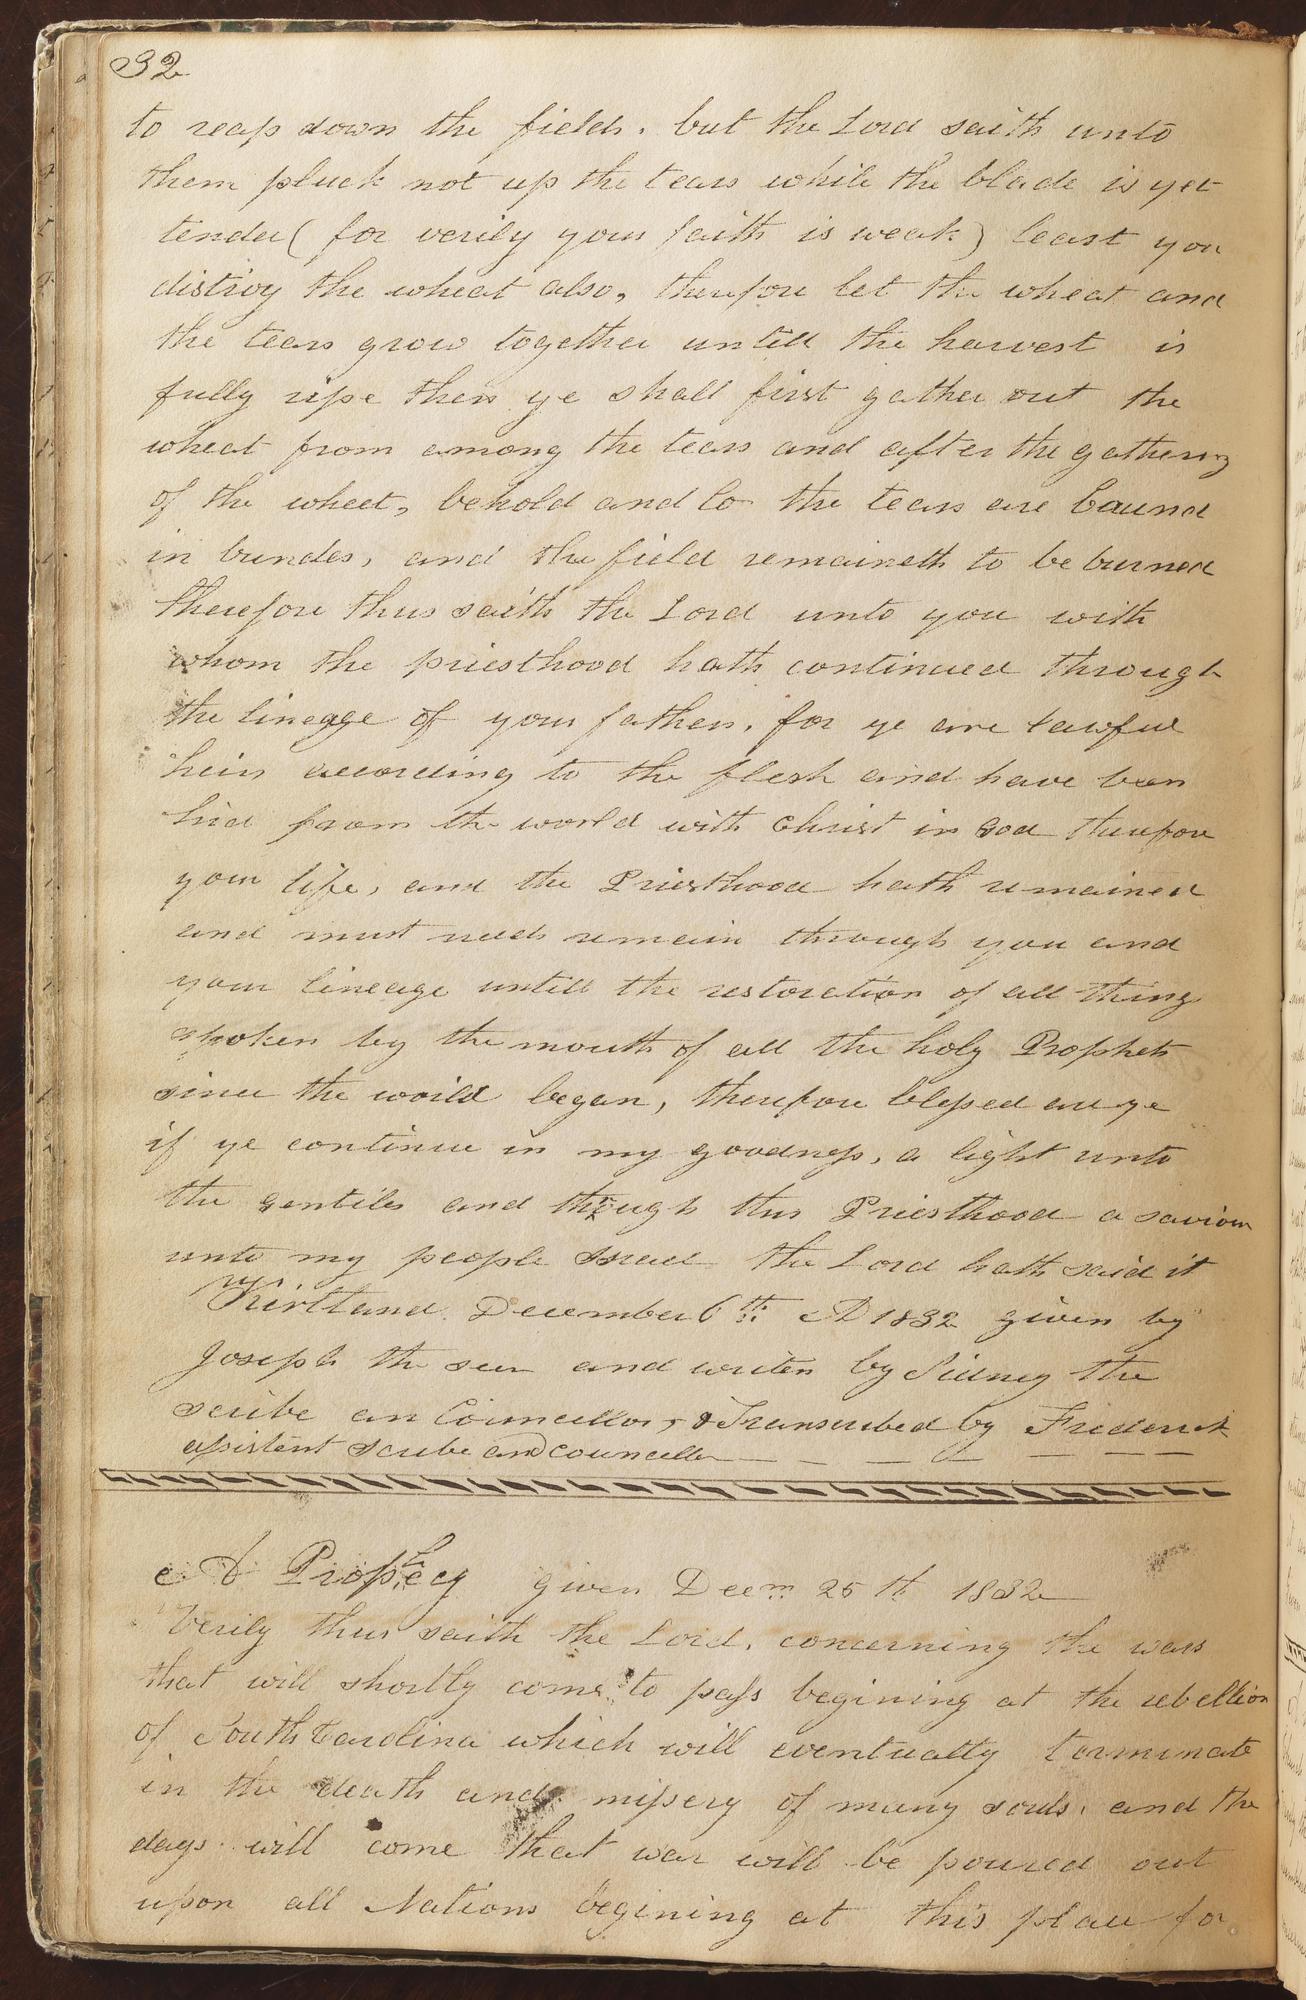 32
to reap down the fields, but the Lord saith unto
them pluck not up the tears while the blade is yet
tender (for verily your faith is weak) least you
distroy the wheat also, therefore let the wheat and
the tears grow together untill the harvest is
fully ripe then ye shall first gather out the
wheat from among the tears and after the gathering
of the wheet, behold and lo the tears are bound
in bundes, and the field remaineth to be burned
therefore thus saith the Lord unto you with
whom the priesthood hath continued through
the lineage of your fathers, for ye are lawful
heirs according to the flesh and have been
hid from the world with Christ in God therefore
your life, and the Priesthood hath remained
and must needs remain through you and
your lineage untill the restoration of all things
spoken by the mouth of all the holy Prophets
since the world began, therefore blessed are ye
if ye continue in my goodness, a light unto
the gentiles and through this Priesthood a saviour
unto my people Israel the Lord hath said it
Kirtland December 6th AD 1832 given by
Joseph the seer and writen by Sidney the
scribe an Councellor, & Transcribed by Frederick
assistent scribe and counceller
A Prophecy given Decm 25th 1832
Verily thus saith the Lord, concerning the wars
that will shortly come to pass begining at the rebellion
of South Carolina which will eventually terminate
in the death and missery of many souls, and the
days will come that war will be poured out
upon all Nations begining at this place for